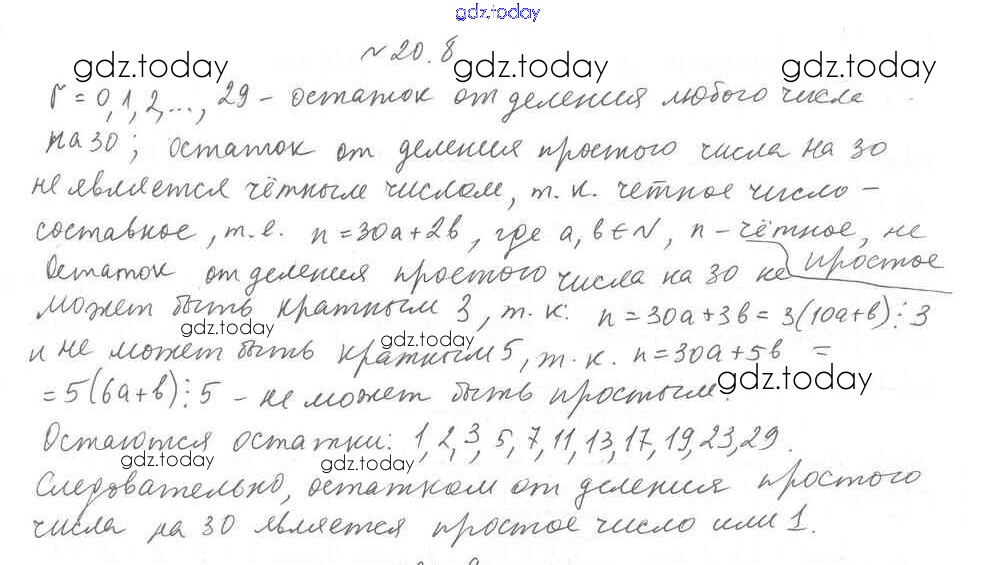 gdz.today
№ 20.8
gdz.today gdz.today
r = 0, 1, 2, ..., 29 – остаток от деления любого числа
на 30; остаток от деления простого числа на 30
не является чётным числом, т. к. четное число –
составное, т. е. n = 30a + 2b, где a, b ∈ N, n – чётное, не простое
Остаток от деления простого числа на 30 не
может быть кратным 3, т. к: n = 30a + 3b = 3(10a + b) ⋮ 3
gdz.today gdz.today
и не может быть кратным 5, т. к. n = 30a + 5b =
= 5(6a + b) ⋮ 5 – не может быть простым.
gdz.today
Остаются остатки: 1, 2, 3, 5, 7, 11, 13, 17, 19, 23, 29.
gdz.today gdz.today
Следовательно, остатком от деления простого
числа на 30 является простое число или 1.